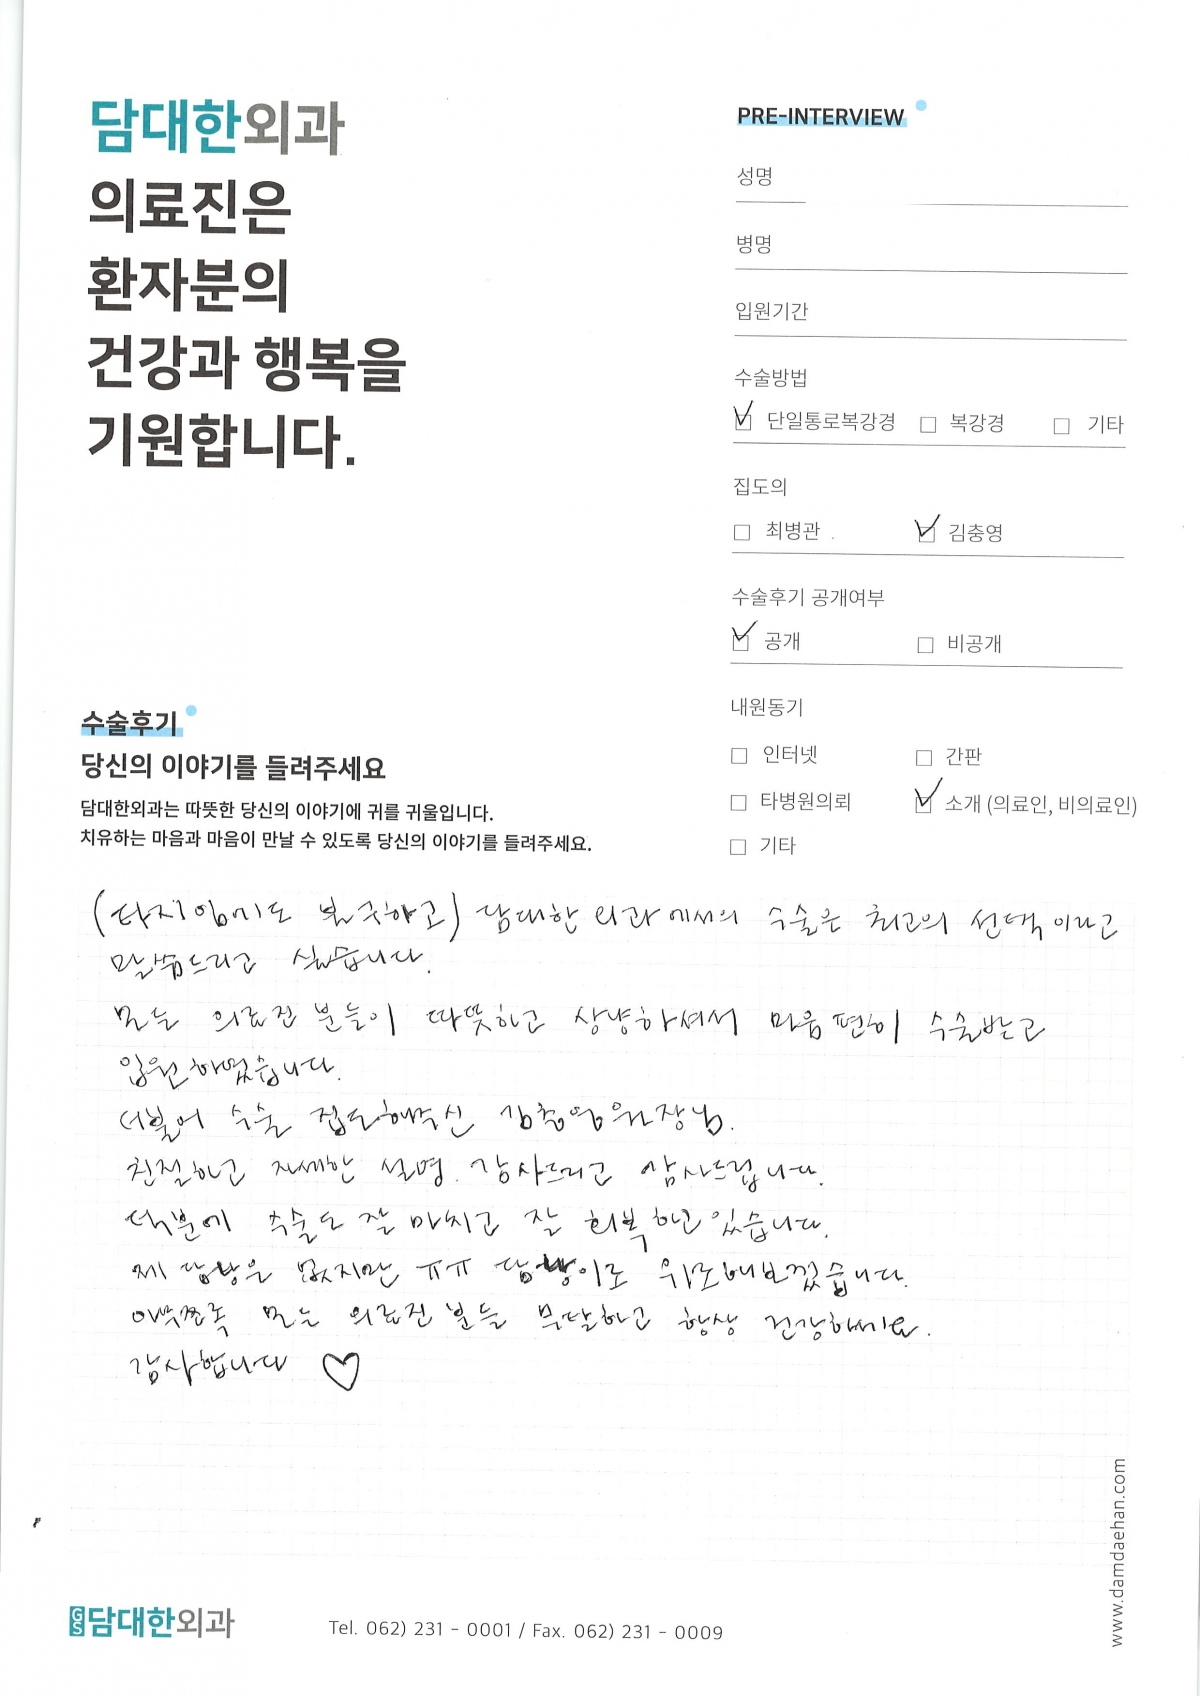 담대한외과
의료진은
환자분의
건강과 행복을
기원합니다.
PRE-INTERVIEW
성명
병명
입원기간
수술방법
단일통로복강경 복강경 기타
집도의
최병관 김충영
수술후기 공개여부
공개 비공개
내원동기
인터넷 간판
타병원의뢰 소개 (의료인, 비의료인)
기타
수술후기
당신의 이야기를 들려주세요
담대한외과는 따뜻한 당신의 이야기에 귀를 귀울입니다.
치유하는 마음과 마음이 만날 수 있도록 당신의 이야기를 들려주세요.
(타지임에도 불구하고) 담대한 외과에서의 수술은 최고의 선택이라고
말씀드리고 싶습니다.
모든 의료진 분들이 따뜻하고 상냥하셔서 마음 편히 수술받고
입원하였습니다.
더불어 수술 집도해주신 김충영원장님.
친절하고 자세한 설명 감사드리고 감사드립니다.
덕분에 수술도 잘 마치고 잘 회복하고 있습니다.
제 담낭은 없지만 ㅠㅠ 담낭이로 위로해보겠습니다.
아무쪼록 모든 의료진 분들 무탈하고 항상 건강하세요.
감사합니다 ♡
GS 담대한외과
Tel. 062) 231 - 0001 / Fax. 062) 231 - 0009
www.damdaehan.com